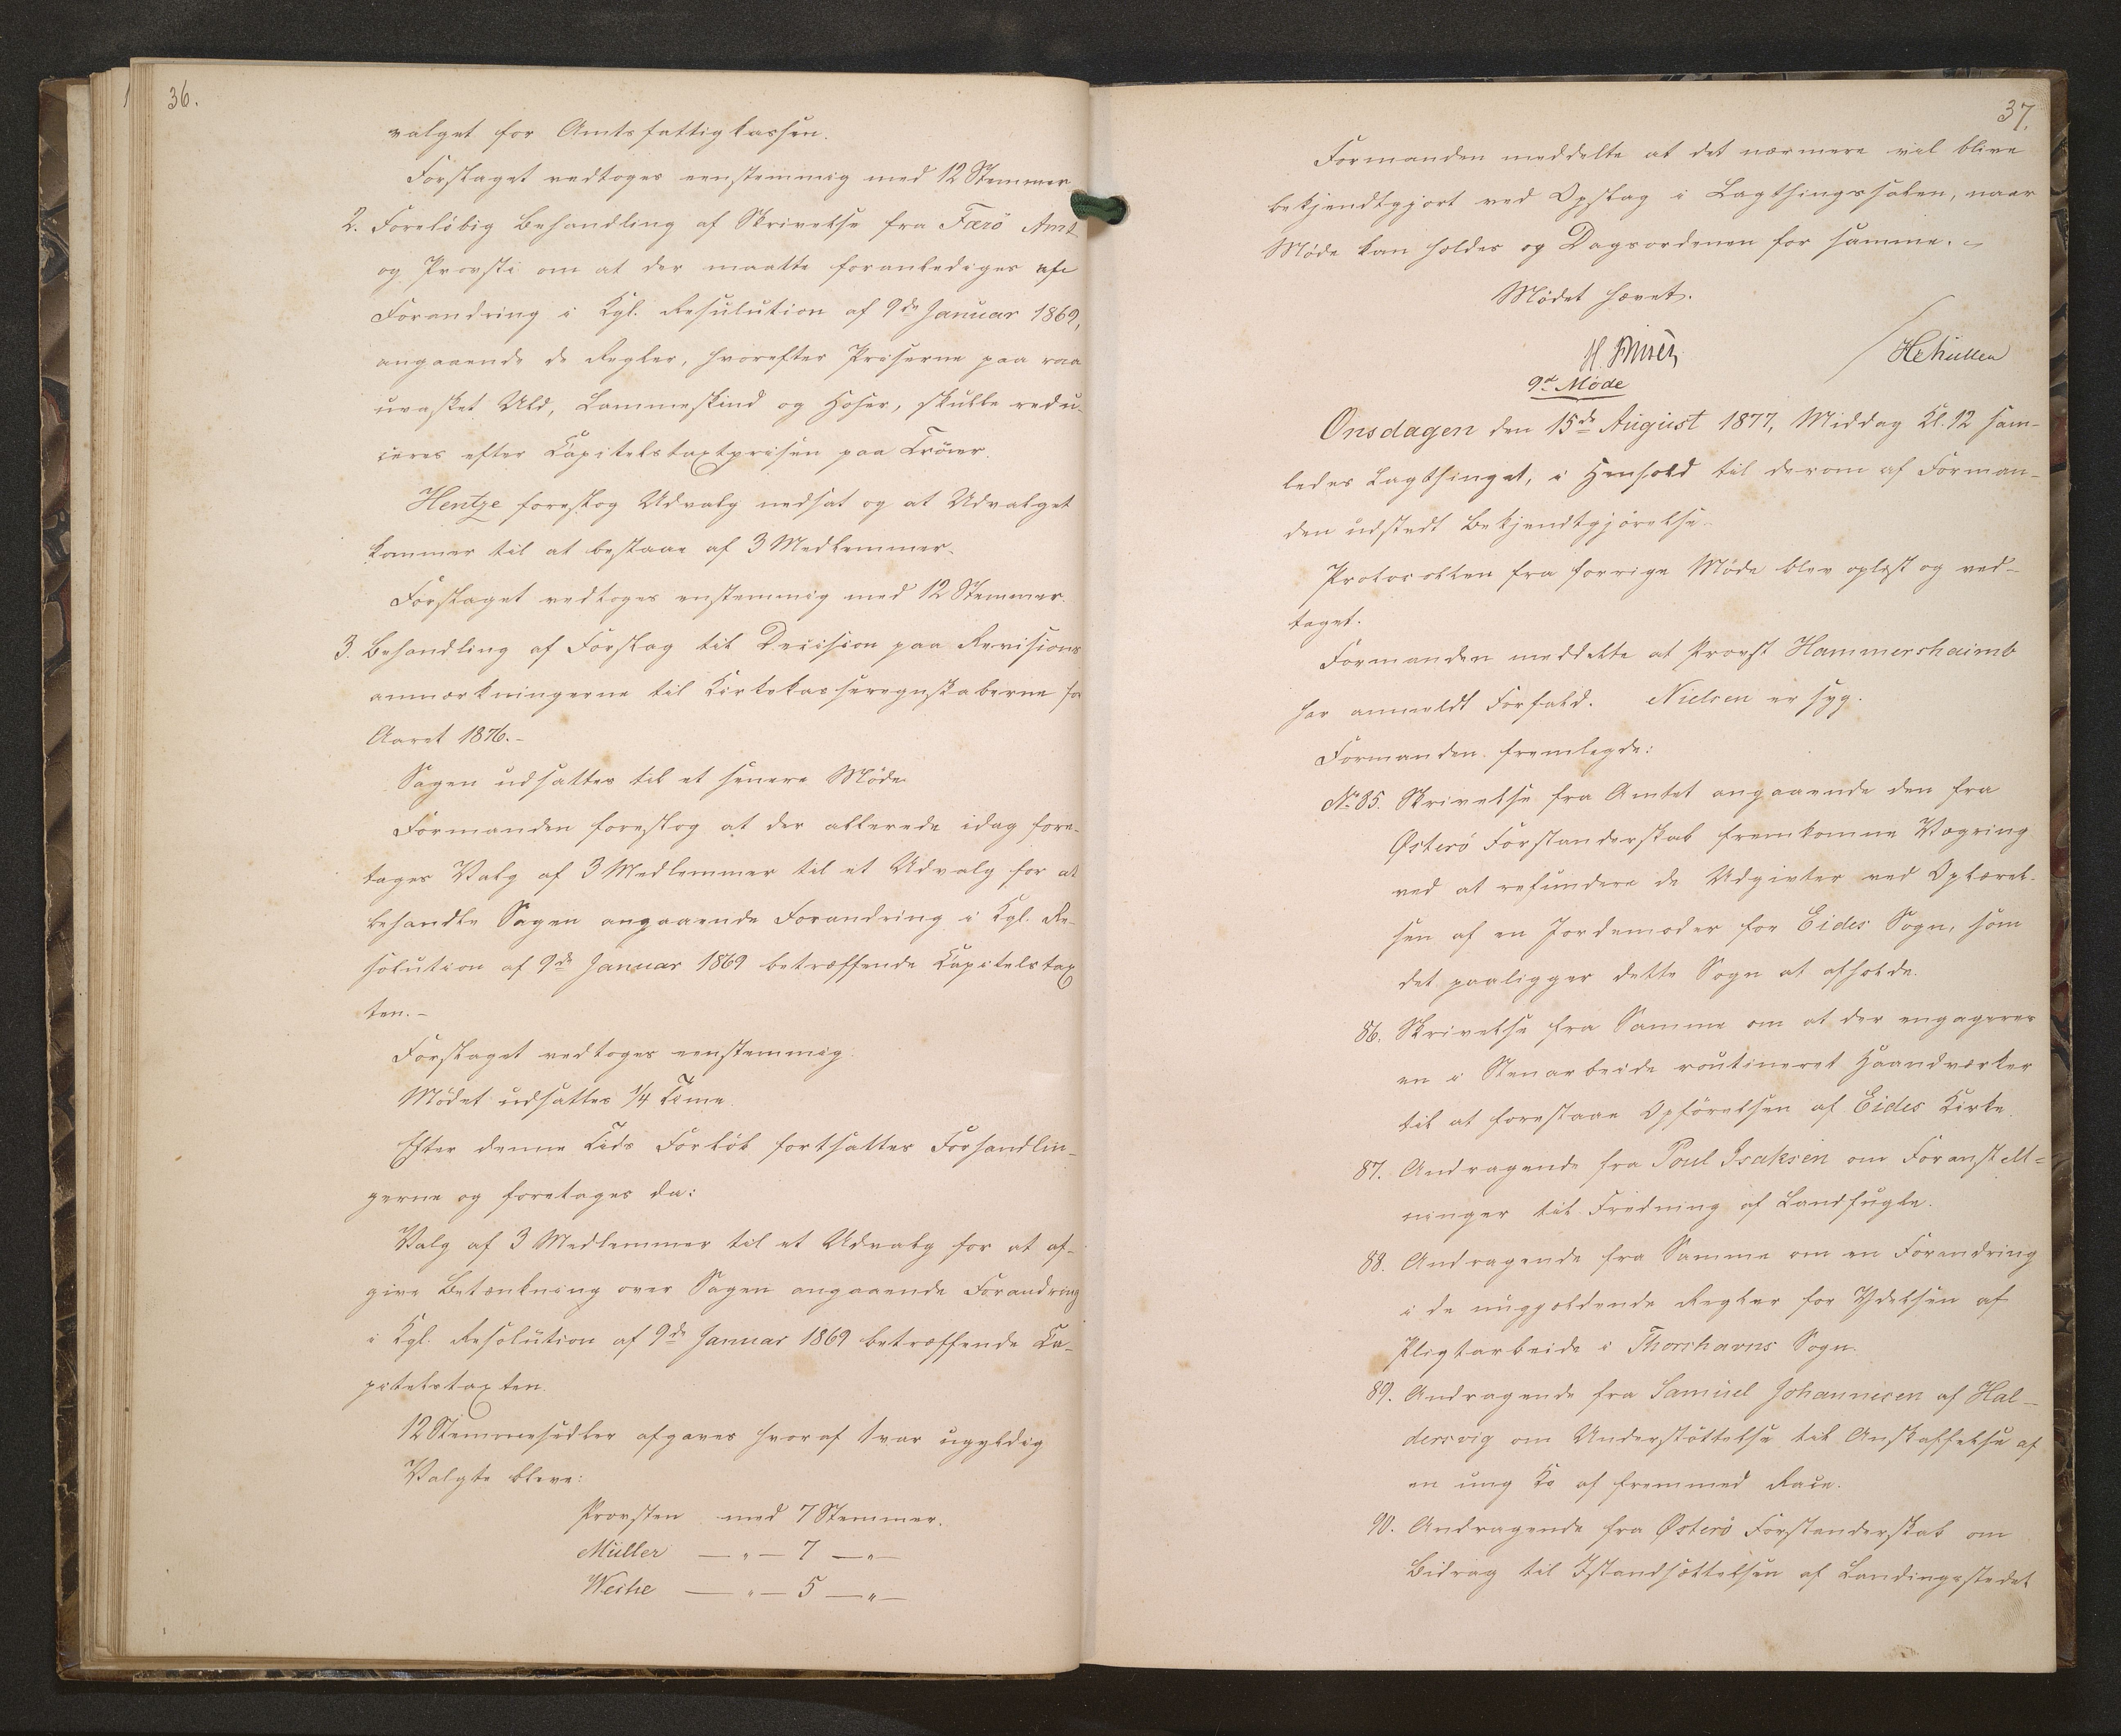 36.
valget for Amtsfattigkassen.
Forslaget vedtoges eenstemmig med 12 Stemmer.
2. Foreløbig Behandling af Skrivelse fra Færö Amt
og Provsti om at der maatte foranlediges
Forandring i Kgl. Resulution af 9de Januar 1869,
angaaende de Regler, hvorefter Priserne paa raa
uvasket Uld, Lammeskind og Hoser, skulle redu-
ceres efter Capitelstaxtprisen paa Tröier.
Hentze foreslog Udvalg nedsat og at Udvalget
kommer til at bestaae af 3 Medlemmer.
Forslaget vedtoges enstemmig med 12 Stemmer.
3. Behandling af Forslag til Decision paa Revisions
anmærkningerne til Kirkekasseregnskaberne for
Aaret 1876.-
Sagen udsattes til et senere Møde.
Formanden foreslog at der allerede idag fore-
tages Valg af 3 Medlemmer til et Udvalg for at
behandle Sagen angaaende Forandring i Kgl. Re-
solution af 9de Januar 1869 betræffende Capitelstax
ten.-
Forslaget vedtoges eenstemmig.
Mödet udsattes 1/4 Time.
Efter denne Tids Forløb fortsattes Forhandlin-
gerne og foretoges da:
Valg af 3 Medlemmer til et Udvalg for at af-
give Betænkning over Sagen angaaende Forandring
i Kgl. Resolution af 9de Januar 1869 betræffende Ca-
pitelstaxten.
12 Stemmesedler afgaves hvoraf 1 var ugyldig
Valgte bleve:
Provsten med 7 Stemmer.
Müller — „ — 7 — „ —
Weihe — „ — 5 — „ —
37.
Formanden meddelte at det nærmere vil blive
bekjendtgjort ved Opslag i Lagthingssalen, naar
Møde kan holdes og Dagsordenen for samme. -
Mödet hævet.
9de Møde
Onsdagen den 15de August 1877, Middag Kl. 12 sam-
ledes Lagthinget, i Henhold til derom af Forman-
den udstedt Bekjendtgjörelse.
Protocollen fra forrige Møde blev oplæst og ved-
taget.
Formanden meddelte at Provst Hammershaimb
har anmeldt Forfald. Nielsen er syg.
Formanden fremlagde:
No 85. Skrivelse fra Amtet angaaende den fra
Østerö Forstanderskab fremkomne Vægring
ved at refundere de Udgivter ved Oplærel-
sen af en Jordemoder for Eides Sogn, som
det paaligger dette Sogn at afholde.
86. Skrivelse fra Samme om at der engageres
en i Stenarbeide routineret Haandværker
til at forestaae Opförelsen af Eides Kirke.
87. Andragende fra Poul Isaksen om Foranstalt-
ninger til Fredning af Landfugle.
88. Andragende fra Samme om en Forandring
i de nugjældende Regler for Ydelsen af
Pligtarbeide i Thorshavns Sogn.
89. Andragende fra Samuel Johannesen af Hal-
dersvig om Understöttelse til Anskaffelse af
en ung Ko af fremmed Race.
90. Andragende fra Østerö Forstanderskab om
Bidrag til Istandsættelsen af Landingsstedet